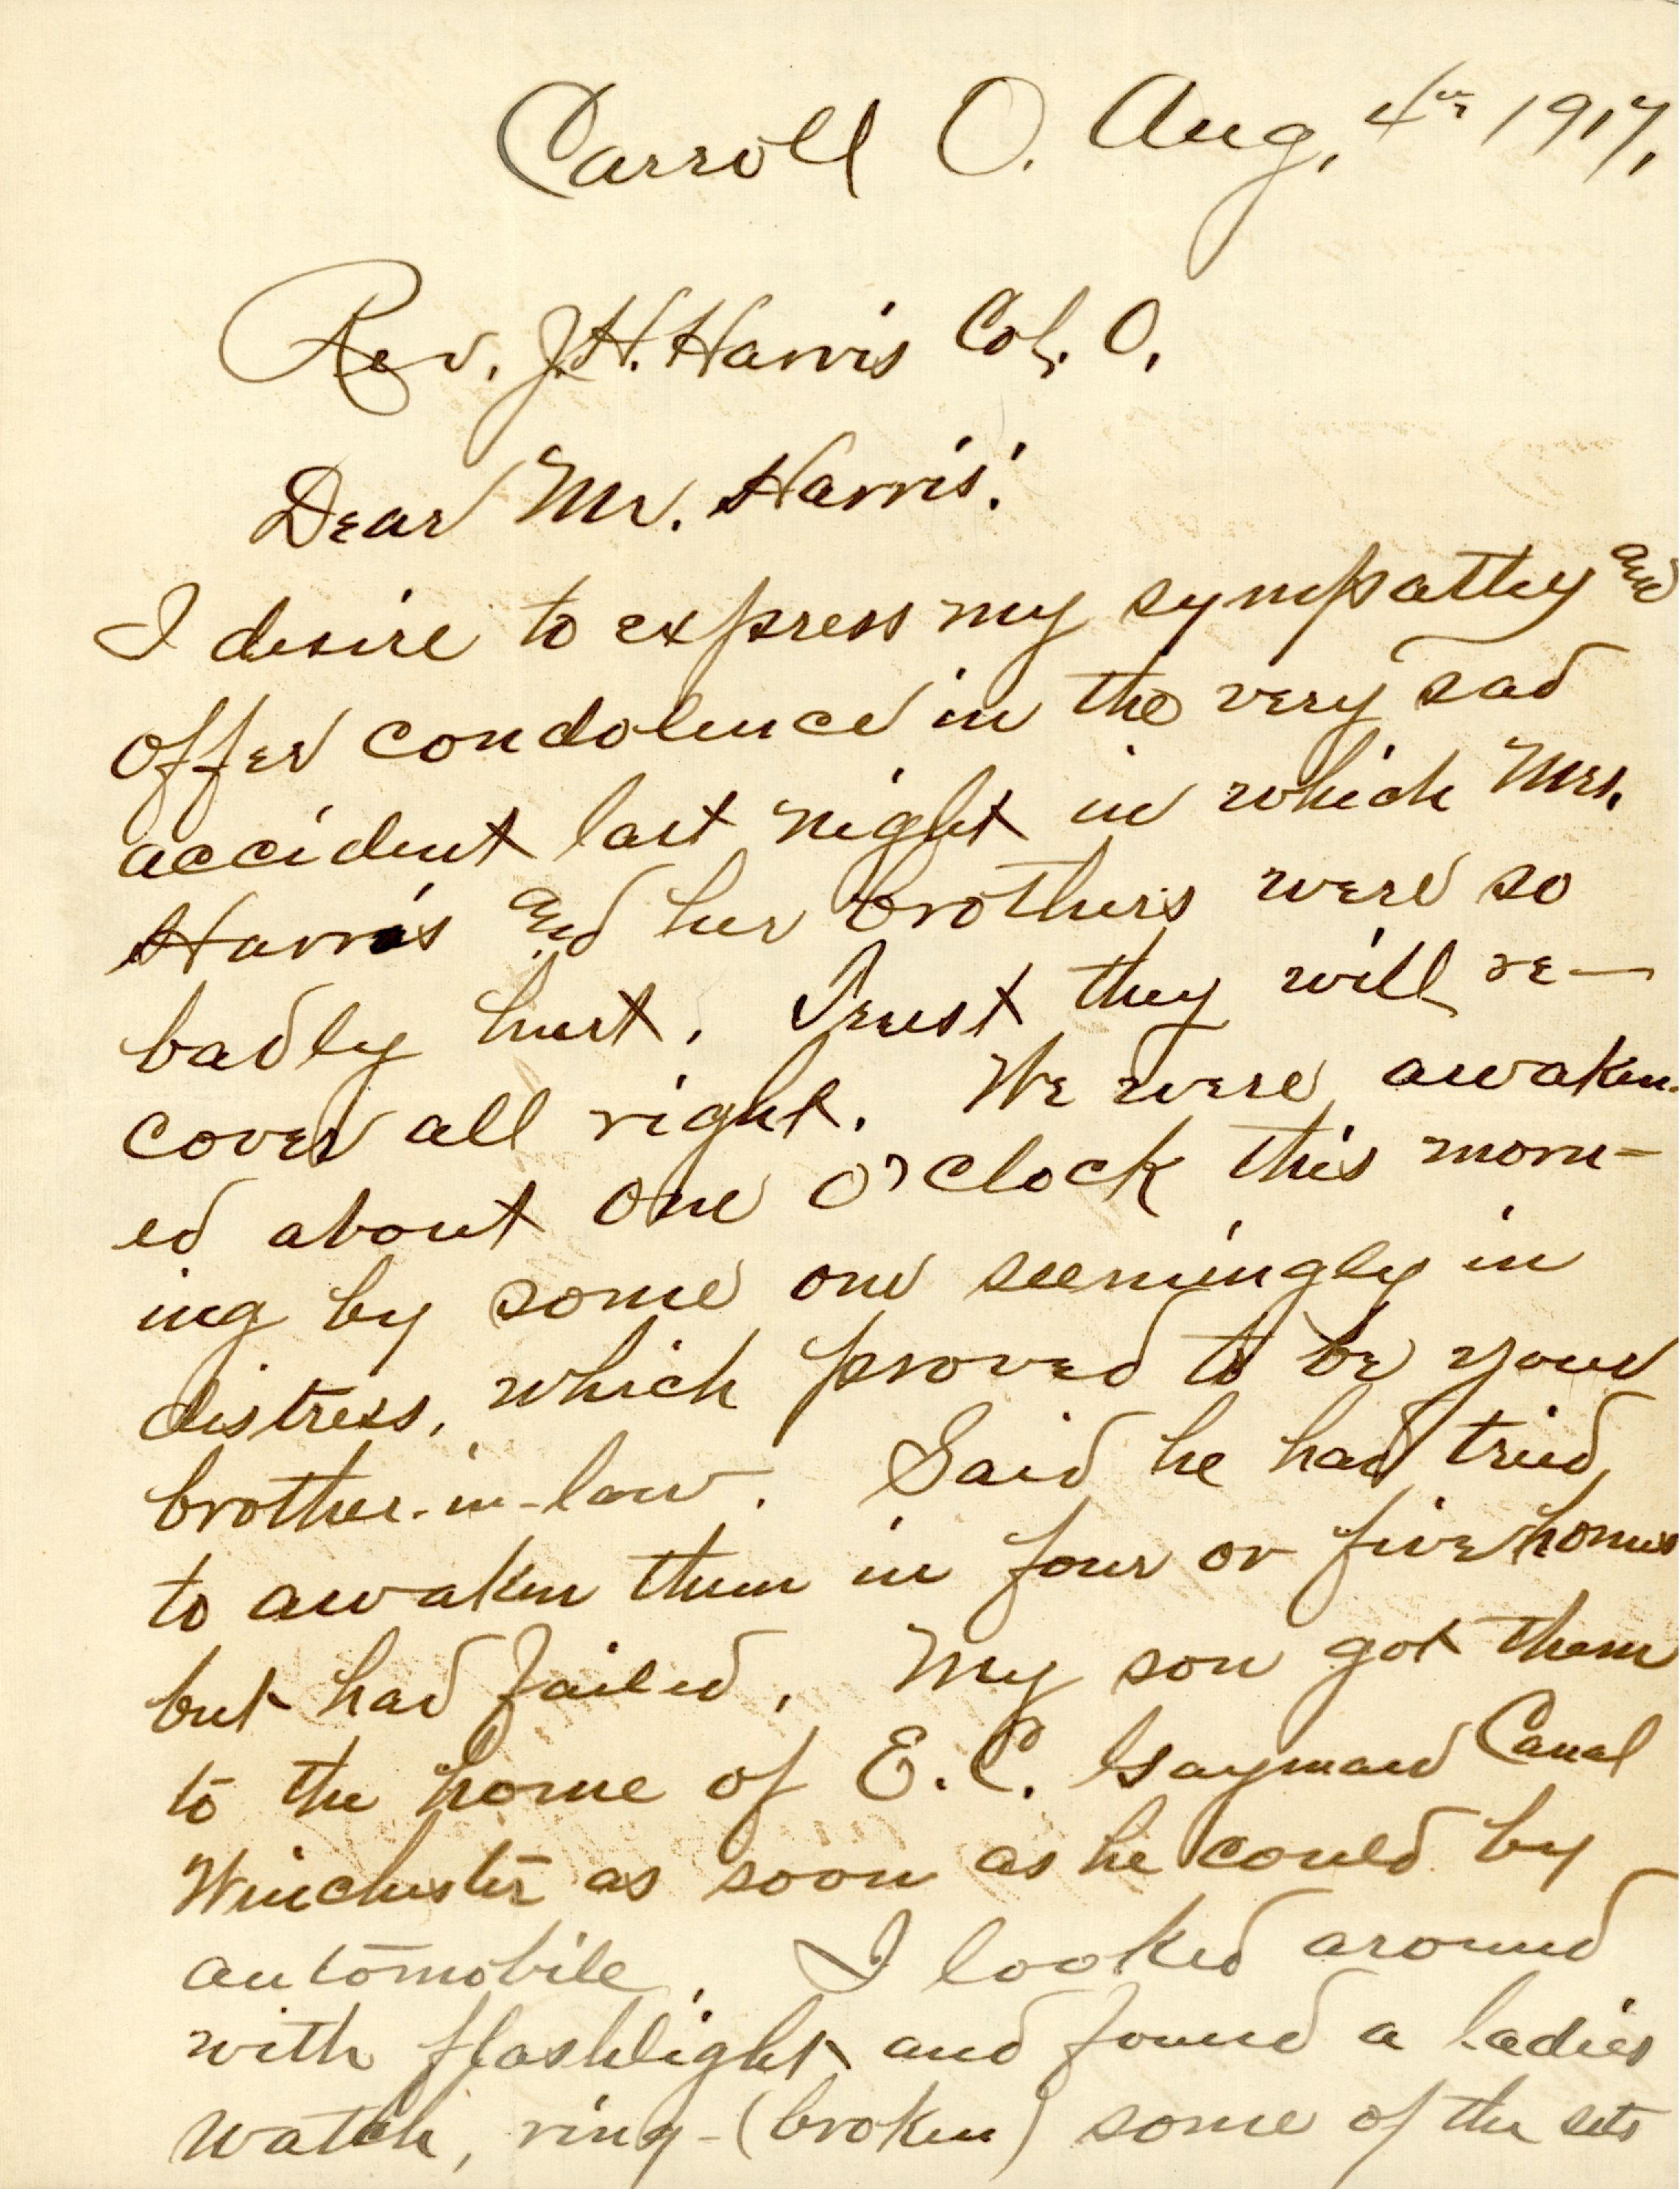 Carroll O. Aug, 4th 1917,
Rev. J.H. Harris Col. O.
Dear Mr. Harris:
I desire to express my sympathy and
offer condolence in the very sad
accident last night in which Mrs.
Harris and her brothers were so
badly hurt. Trust they will re-
cover all right. We were awaken-
ed about one o'clock this morn-
ing by some one seemingly in
distress, which proved to be your
brother-in-law. Said he had tried
to awaken them in four or five homes
but had failed. My son got them
to the home of E. C. Gayman Canal
Winchester as soon as he could by
automobile. I looked around
with flashlight and found a ladies
watch, ring-(broken) some of the sets